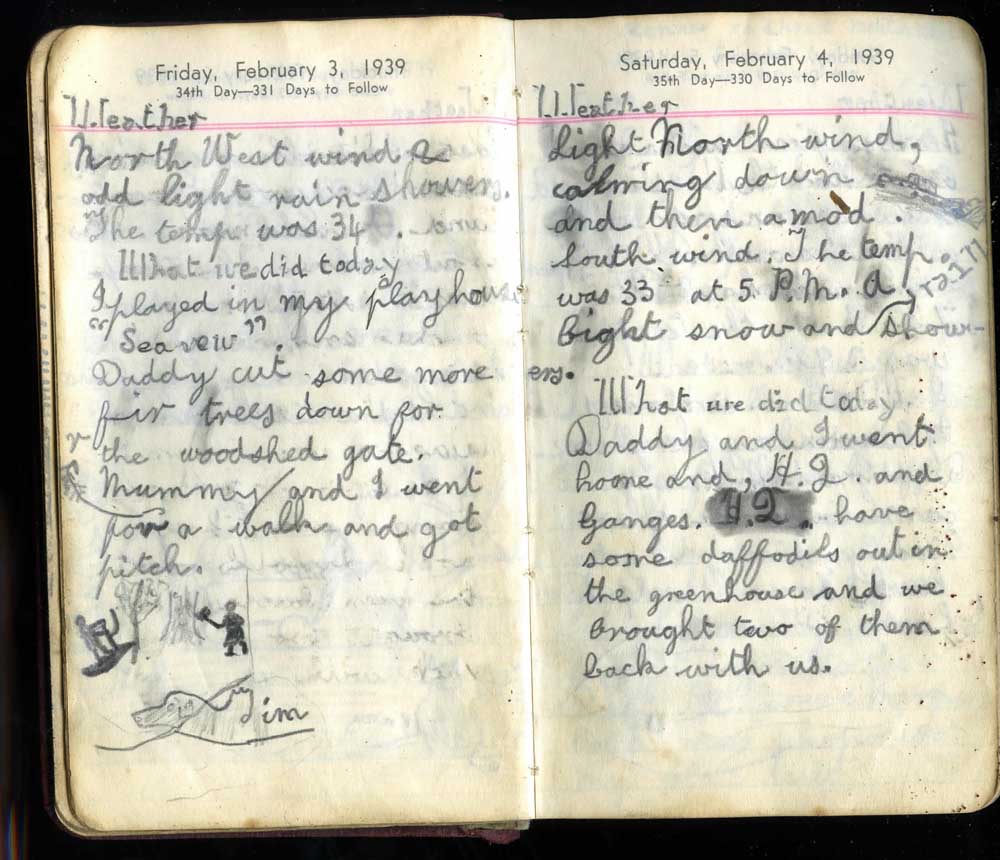 Friday, February 3, 1939
34th Day—331 Days to Follow
Weather
North West wind &
odd light rain showers.
The temp was 34 .
What we did today
I played in my playhouse
"Sea vew".
Daddy cut some more
fir trees down for
the woodshed gate.
Mummy and I went
for a walk and got
pitch.
Jim
Saturday, February 4, 1939
35th Day—330 Days to Follow
Weather
Light North wind,
calming down
and then a mod.
South wind. The temp.
was 33 at 5 P.M. A
light snow and rain show-
ers.
What we did today.
Daddy and I went
hoone and, H.Q. and
Ganges. H.Q. have
some daffodils out in
the greenhouse and we
brought two of them
back with us.